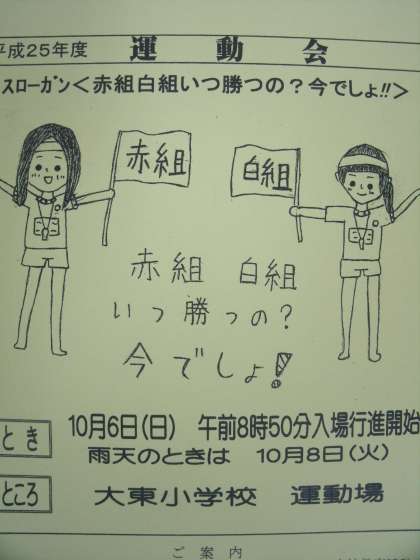 平成25年度 運動会
スローガン＜赤組白組いつ勝つの？今でしょ!!＞
赤組 白組
赤組 白組
いつ勝つの？
今でしょ!
とき 10月6日(日) 午前8時50分入場行進開始
雨天のときは 10月8日(火)
ところ 大東小学校 運動場
ご案内